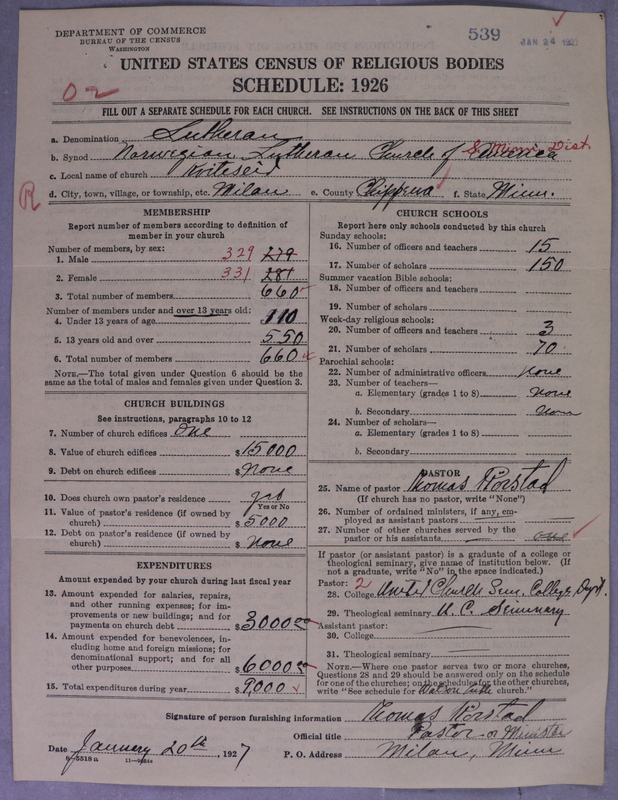 DEPARTMENT OF COMMERCE
BUREAU OF THE CENSUS
WASHINGTON
539
JAN 24 192
UNITED STATES CENSUS OF RELIGIOUS BODIES
SCHEDULE: 1926
02
FILL OUT A SEPARATE SCHEDULE FOR EACH CHURCH. SEE INSTRUCTIONS ON THE BACK OF THIS SHEET
a. Denomination Lutheran
b. Synod Norwegian Lutheran Church of America S. Minn. Dist
c. Local name of church Kviteseid
R
d. City, town, village, or township, etc. Milan e. County Chippewa f. State Minn.
MEMBERSHIP
Report number of members according to definition of
member in your church
Number of members, by sex:
1. Male 329 279
2. Female 331 281
3. Total number of members 660
Number of members under and over 13 years old:
4. Under 13 years of age 110
5. 13 years old and over 550
6. Total number of members 660
NOTE.—The total given under Question 6 should be
same as the total of males and females given under Question 3.
CHURCH BUILDINGS
See instructions, paragraphs 10 to 12
7. Number of church edifices One
8. Value of church edifices $15000
9. Debt on church edifices $None
10. Does church own pastor's residence yes
Yes or No
11. Value of pastor's residence (if owned by
church) $5000
12. Debt on pastor's residence (if owned by
church) $None
EXPENDITURES
Amount expended by your church during last fiscal year
13. Amount expended for salaries, repairs,
and other running expenses; for im-
provements or new buildings; and for
payments on church debt $3000.00
14. Amount expended for benevolences, in-
cluding home and foreign missions; for
denominational support; and for all
other purposes $6000.00
15. Total expenditures during year $9,000
CHURCH SCHOOLS
Report here only schools conducted by this church
Sunday schools:
16. Number of officers and teachers 15
17. Number of scholars 150
Summer vacation Bible schools:
18. Number of officers and teachers
19. Number of scholars
Week-day religious schools:
20. Number of officers and teachers 3
21. Number of scholars 70
Parochial schools:
22. Number of administrative officers none
23. Number of teachers—
a. Elementary (grades 1 to 8) None
b. Secondary None
24. Number of scholars—
a. Elementary (grades 1 to 8)
b. Secondary
PASTOR
25. Name of pastor Thomas Rörstad
(If church has no pastor, write "None")
26. Number of ordained ministers, if any, em-
ployed as assistant pastors
27. Number of other churches served by the
pastor or his assistants One
If pastor (or assistant pastor) is a graduate of a college or
theological seminary, give name of institution below. (If
not a graduate, write "No" in the space indicated.)
Pastor: 2
28. College United Church Sem. College Dept.
29. Theological seminary U.C. Seminary
Assistant pastor:
30. College
31. Theological seminary
NOTE.—Where one pastor serves two or more churches,
Questions 28 and 29 should be answered only on the schedule
for one of the churches; on the schedules for the other churches,
write "See schedule for church."
Signature of person furnishing information Thomas Rörstad
Official title Pastor or Minister
Date January 20th, 1927 P. O. Address Milan, Minn